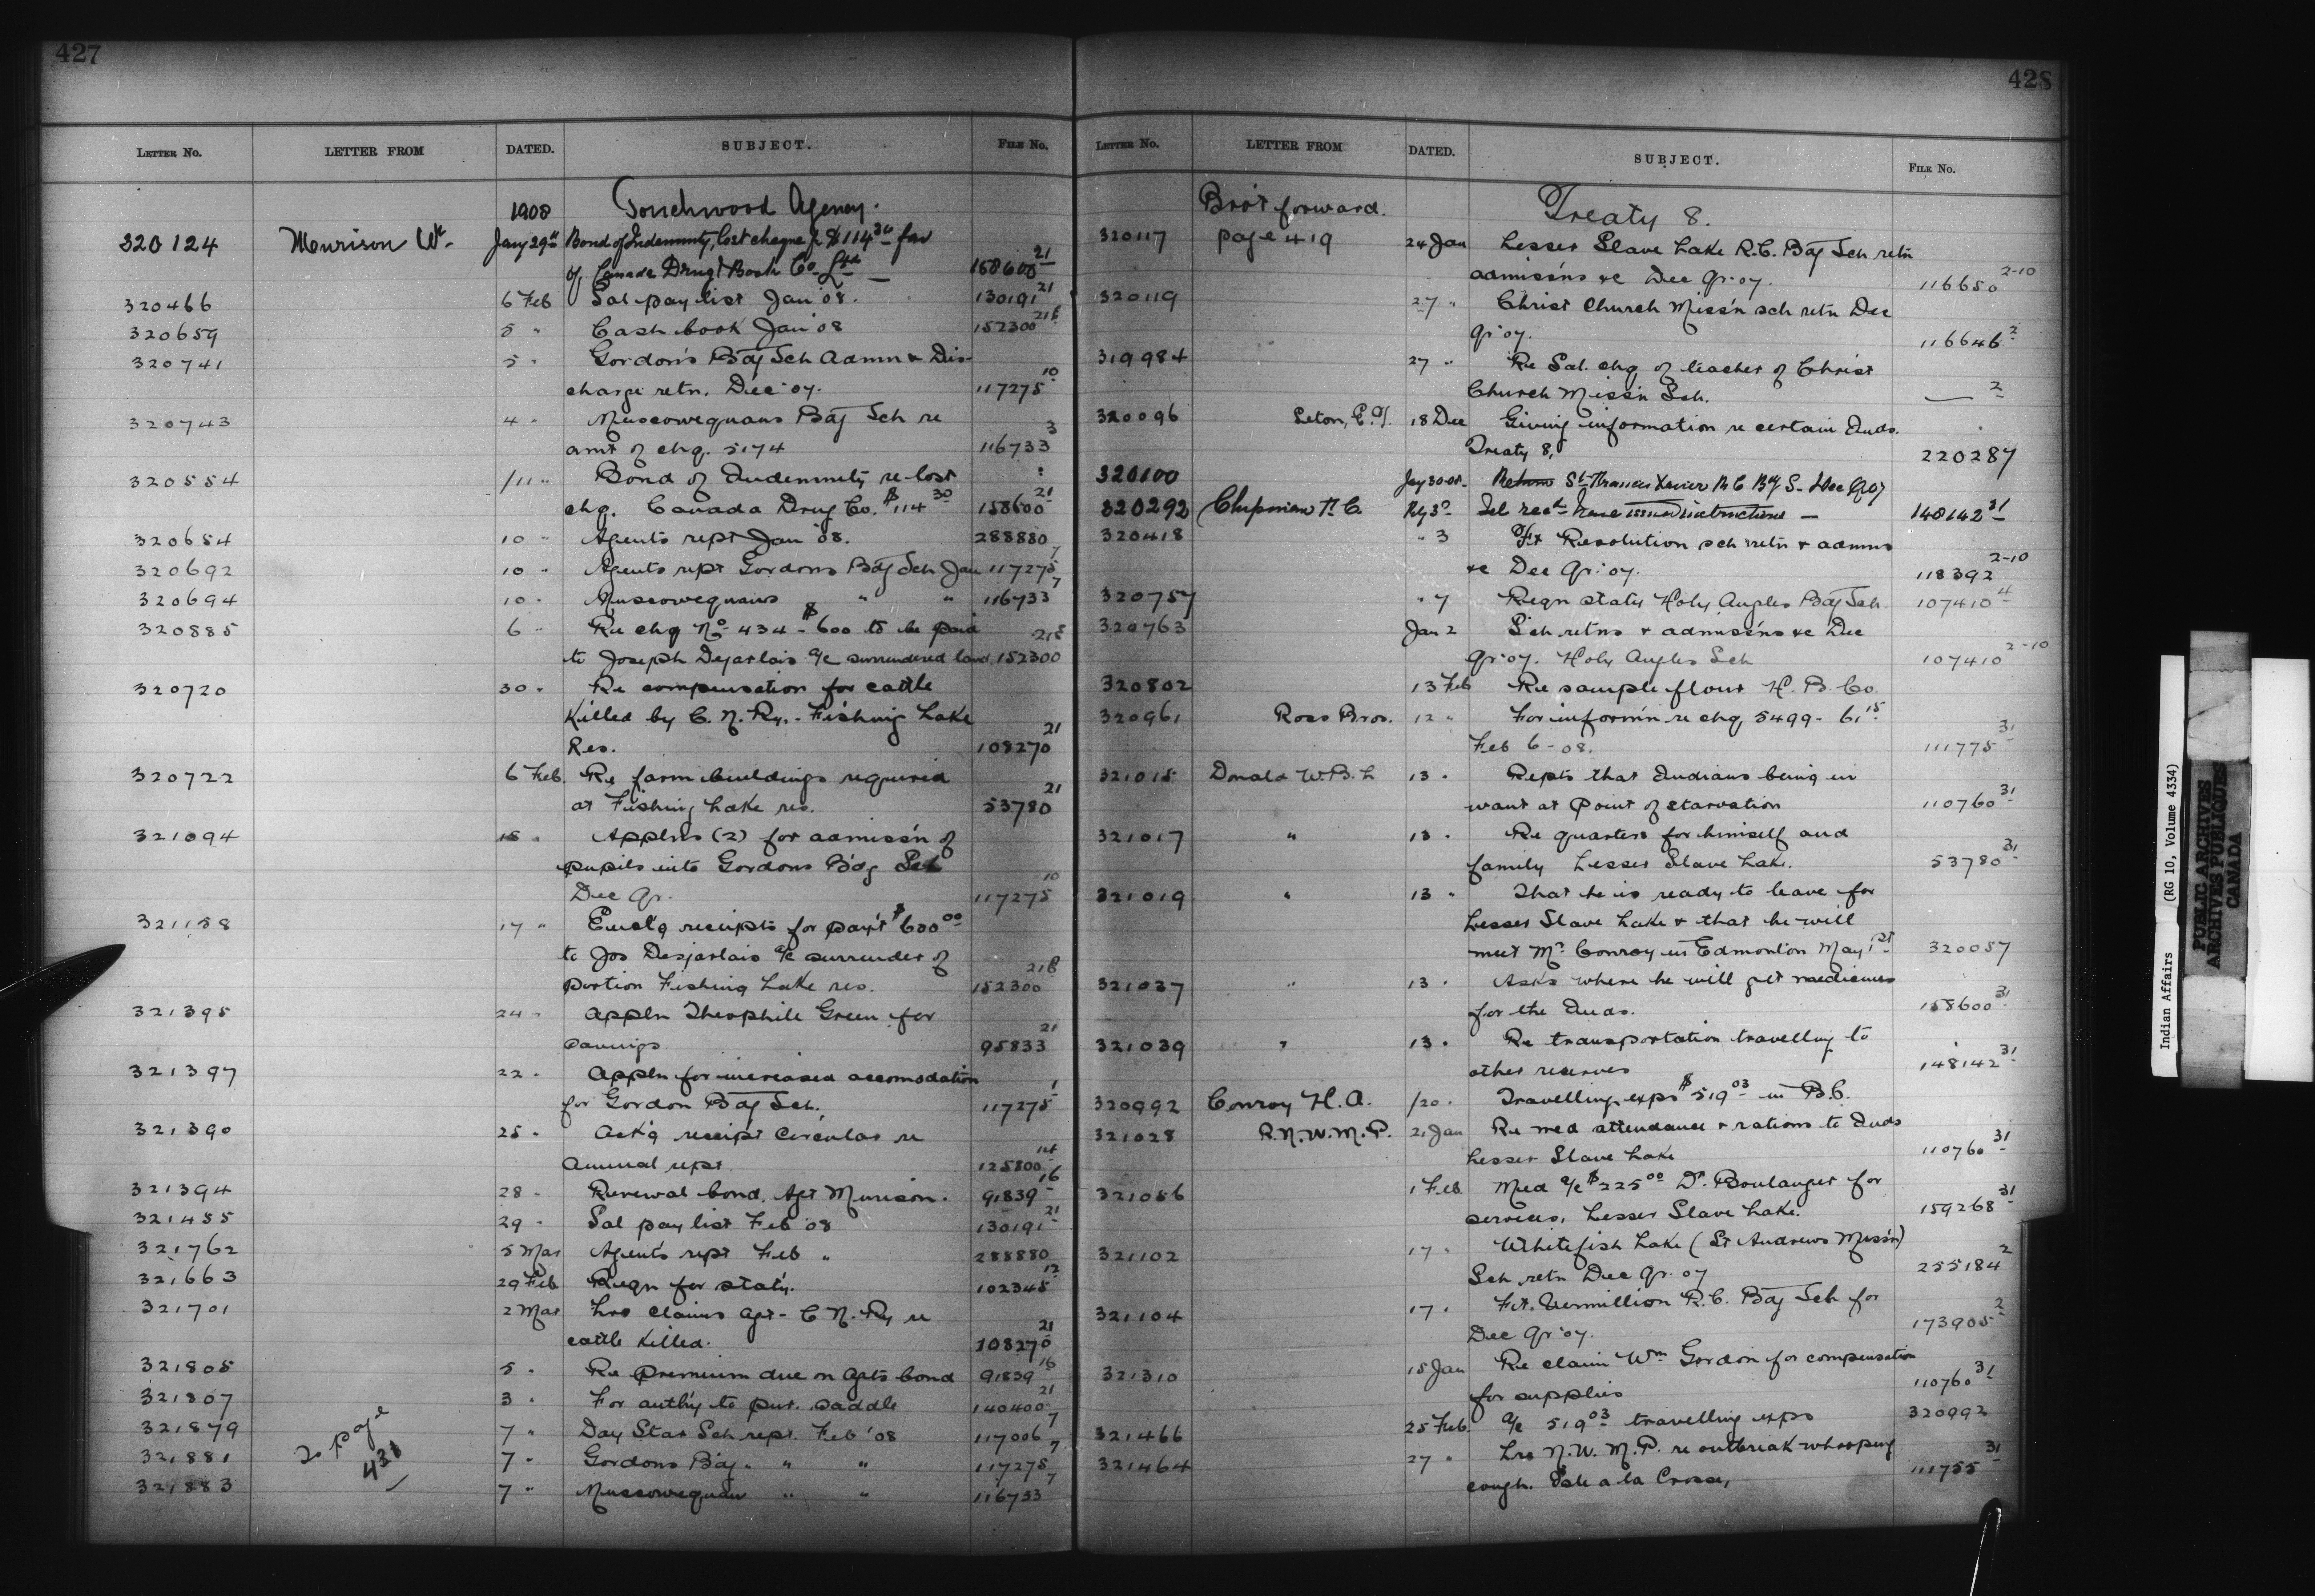 427
LETTER NO. LETTER FROM DATED. SUBJECT. FILE NO.
1908 Touchwood Agency.
320124 Murison Wm Jany 29th Bond of Indemnity, lost cheque for $114 30 fav
of Canada Drug & Book Co. Ltd — 158600 21
320466 6 Feb Sal pay list Jan '08. 130191 21
320659 5 " Cash book Jan '08 152300
320741 5 " Gordon's Bdg Sch Admn & Dis-
charge retn. Dec '07. 117275 10
320743 4 " Muscowequans Bdg Sch re
amt of chq. 5174 116733 3
320554 /11 " Bond of Indemnity re lost
chq. Canada Drug Co. $114 30 158600 21
320654 10 " Agents rept Jan '08. 288880
320692 10 " Agents rept Gordons Bdg Sch Jan 117275 7
320694 10 " Muscowequans " " 116733 7
320885 6 " Re chq No 434 - $600 to be paid
to Joseph Dejarlais a/c surrendered land 152300
320720 30 " Re compensation for cattle
killed by C. N. Ry. - Fishing Lake
Res. 108270 21
320722 6 Feb. Re farm buildings required
at Fishing Lake res. 53780 21
321094 18 " Applns (2) for admiss'n of
pupils into Gordons Bdg Sch
Dec Qr. 117275 10
321158 17 " Encl'g receipts for paym't $600 00
to Jos Desjarlais a/c surrender of
portion Fishing Lake res. 152300
321395 24 " Appln Theophile Green for
savings 95833 21
321397 22 " Appln for increased accomodation
for Gordon Bdg Sch. 117275 1
321390 25 " Ack'g receipt Circular re
Annual rept. 125800 14
321394 28 " Renewal bond. Agt Murison. 91839 16
321455 29 " Sal pay list Feb '08 130191 21
321762 5 Mar Agents rept Feb " 288880
321663 29 Feb Reqn for stat'y. 102345 12
321701 2 Mar Lrs claims agt - C N. Ry re
cattle killed. 108270 21
321805 5 " Re Premium due on Agts bond 91839 16
321807 3 " For auth'y to pur. saddle 140400 21
321879 7 " Day Star Sch rept. Feb '08 117006 7
321881 7 " Gordons Bdg. " " 117275 7
321883 7 " Muscowequan " " 116733 7
To page
431
428
LETTER NO. LETTER FROM DATED. SUBJECT. FILE NO.
Bro't forward. Treaty 8.
320117 page 419 24 Jan Lesser Slave Lake R.C. Bdg Sch retn
admiss'ns &c Dec Qr. 07. 116650 2-10
320119 27 " Christ Church Miss'n sch retn Dec
Qr. 07. 116646 2
319984 27 " Re Sal. chq of teacher of Christ
Church Miss'n Sch. — 2
320096 18 Dec Giving information re certain Inds.
Treaty 8, 220287
320100 Jay 30-08 Return St Francis Xavier R C Bdg S- Dec Q 07
320292 Chipman C. C. Tel rec'd have issued instructions — 148142 31
320418 " 3 Ft Resolution sch retn & admns
&c Dec Qr. 07. 118392 2-10
320757 " 7 Reqn stat'y Holy Angles Bdg Sch. 107410 4
320763 Jan 2 Sch retns & admiss'ns &c Dec
Qr. 07. Holy Angles Sch 107410 2-10
320802 13 Feb Re sample flour H. B. Co.
320961 Ross Bros. 12 " For inform'n re chq 5499 - 61 15
Feb 6 - 08. 111775 31
321015 Donald W.B.L 13 " Repts that Indians being in
want at point of starvation 110760 31
321017 " 13 " Re quarters for himself and
family Lesser Slave Lake. 53780 31
321019 " 13 " That he is ready to leave for
Lesser Slave Lake & that he will
meet Mr. Conroy in Edmonton May 1st 320057
321037 " 13 " Asks where he will get medicines
for the Inds. 158600 31
321039 " 13 " Re transportation travelling to
other reserves 148142 31
320992 Conroy H. A. /20 " Travelling exps $519 03 in B.C.
321028 R. N. W. M. P. 21 Jan Re med attendance & rations to Inds
Lesser Slave Lake 110760 31
321056 1 Feb Med a/c $225 00 Dr. Boulanger for
services, Lesser Slave Lake. 159268 31
321102 17 " Whitefish Lake (St Andrews Miss'n)
Sch retn Dec Qr. 07 255184 2
321104 17 " Ft. Vermillion R. C. Bdg Sch for
Dec Qr. 07. 173905 2
321310 15 Jan Re claim Wm Gordon for compensation
for supplies 110760 31
321466 25 Feb. a/c 519 03 travelling exps 320992
321464 27 " Lrs N. W. M. P. re outbreak whooping
cough. Isle a la Crosse, 111755 31
Indian Affairs (RG 10, Volume 4334)
PUBLIC ARCHIVES
ARCHIVES PUBLIQUES
CANADA